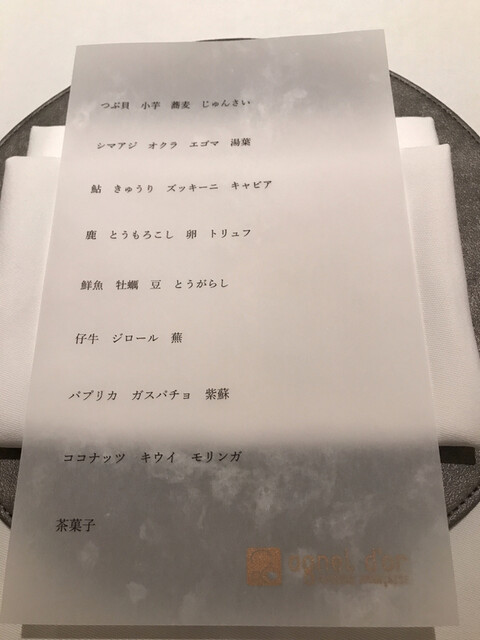 つぶ貝　小芋　蕎麦　じゅんさい
シマアジ　オクラ　エゴマ　湯葉
鮎　きゅうり　ズッキーニ　キャビア
鹿　とうもろこし　卵　トリュフ
鮮魚　牡蠣　豆　とうがらし
仔牛　ジロール　蕪
パプリカ　ガスパチョ　紫蘇
ココナッツ　キウイ　モリンガ
茶菓子